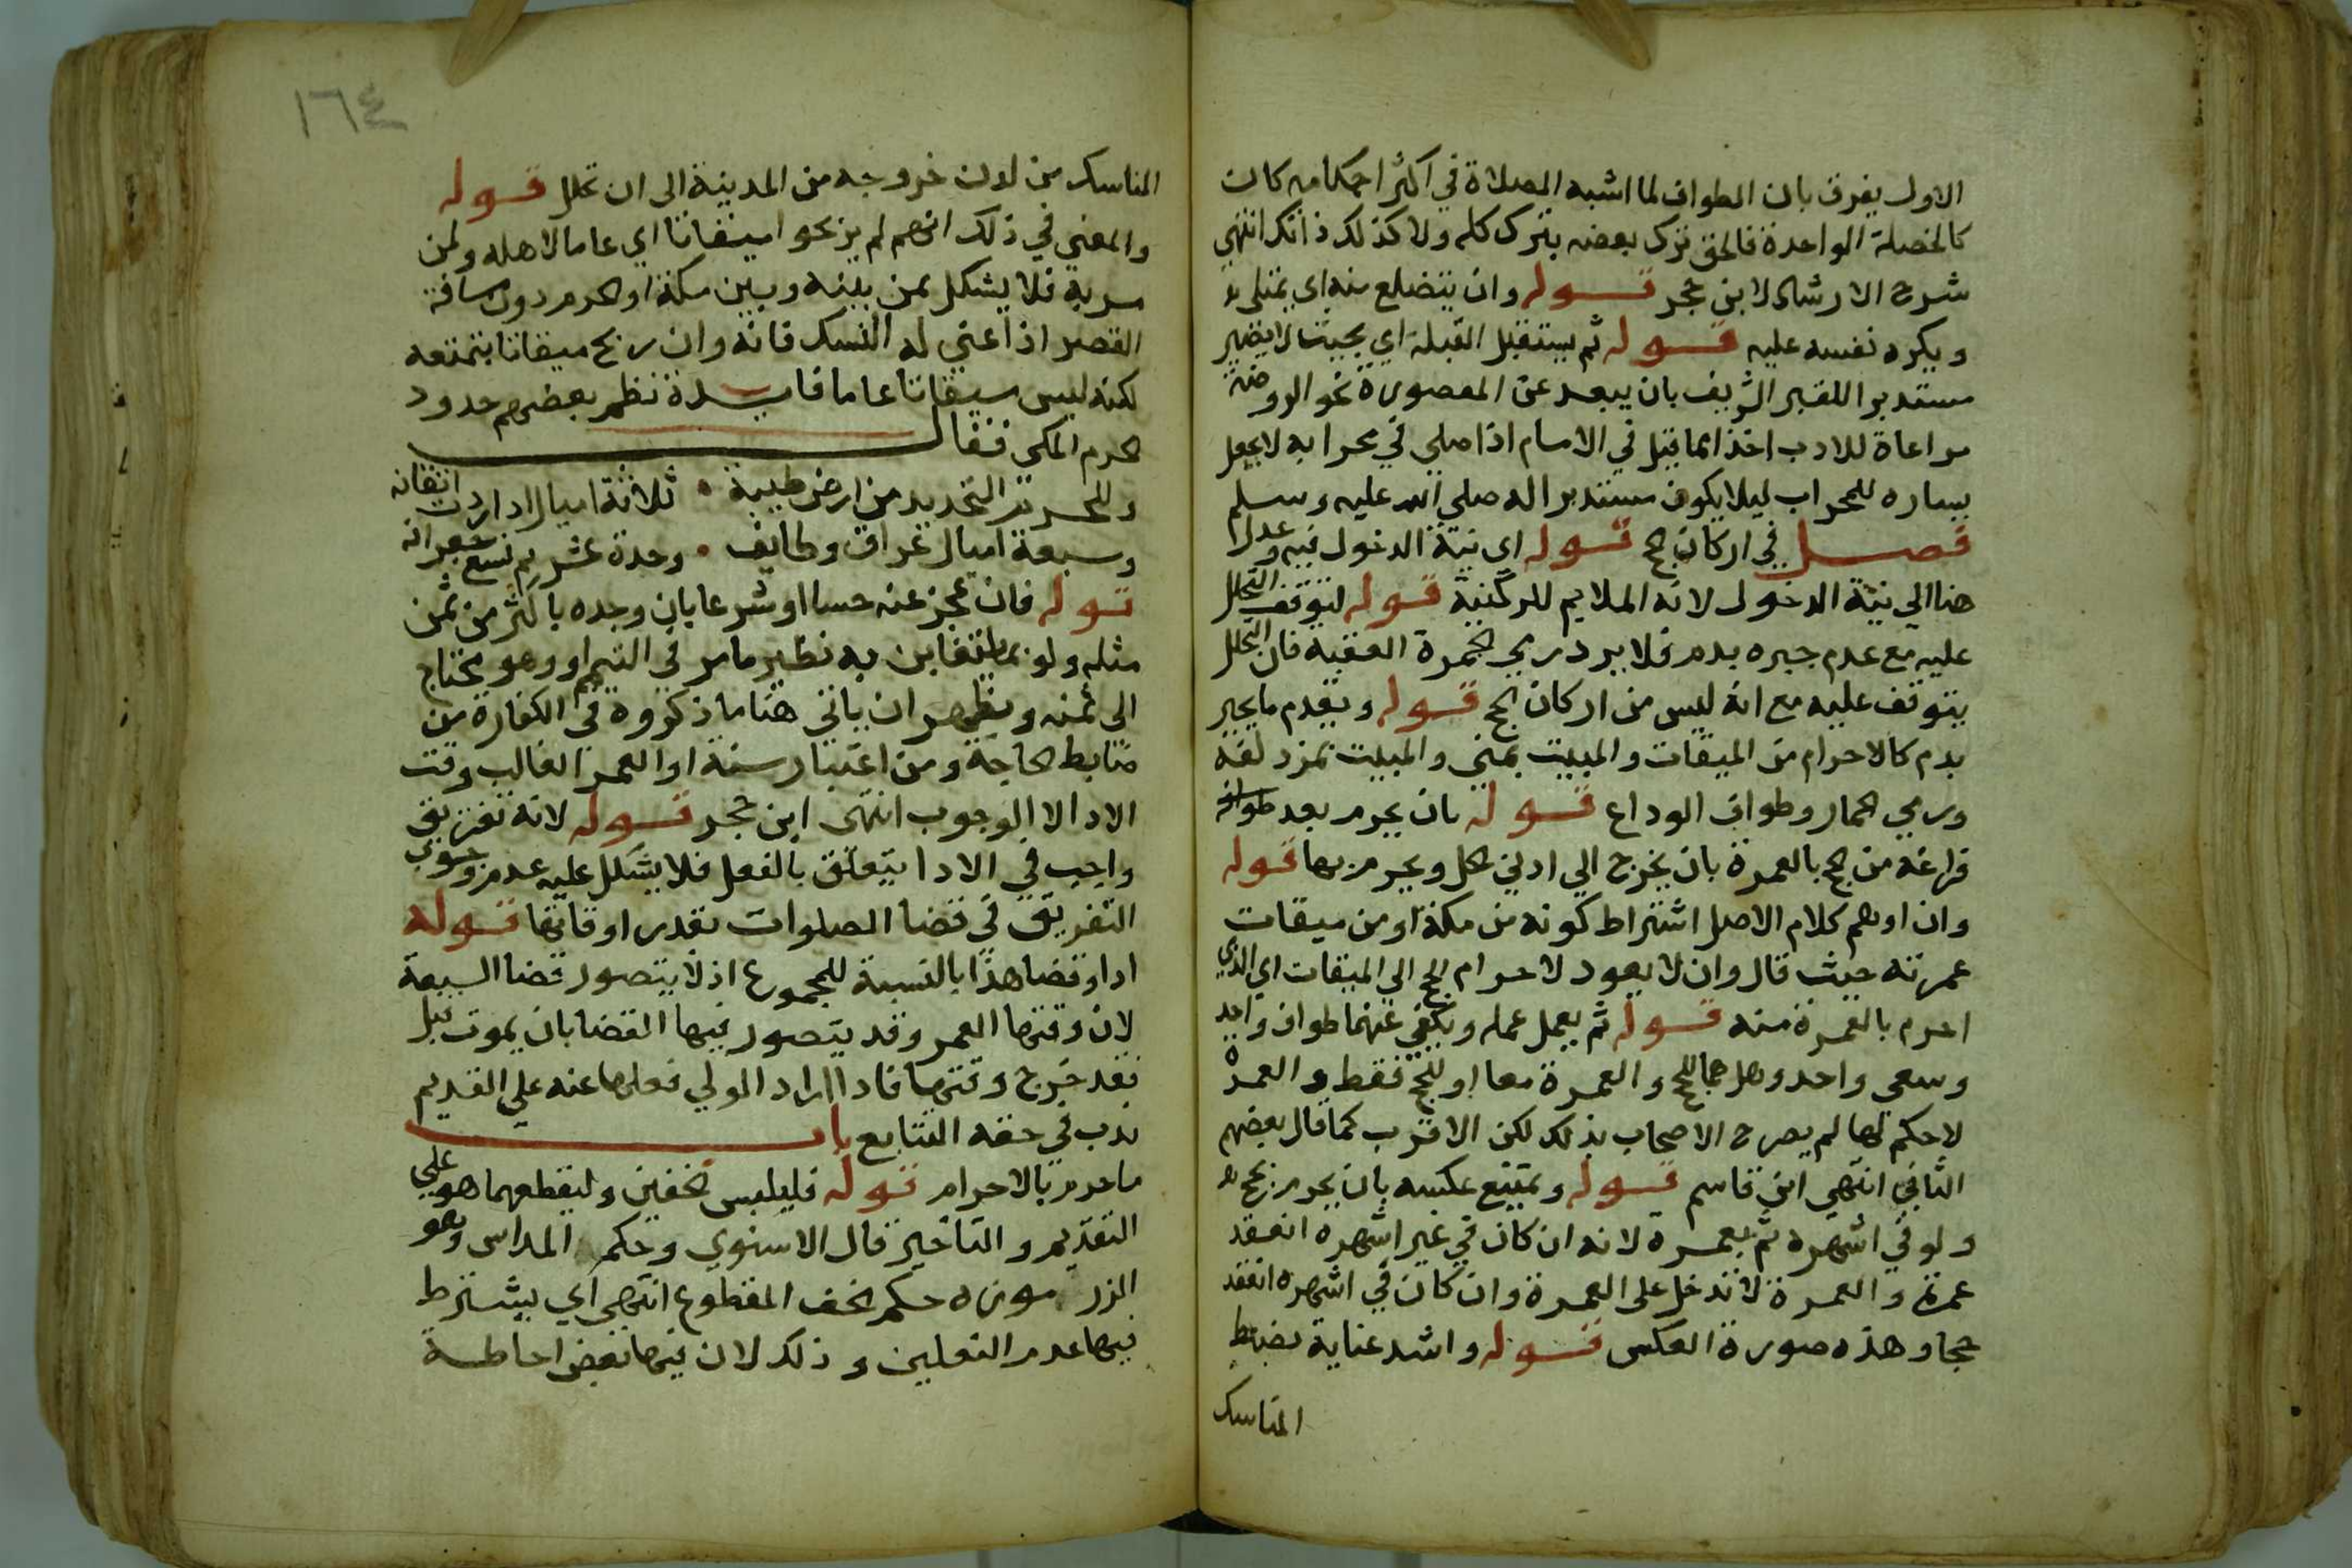 الاول يفرق بان الطواف لما اشبه الصلاة في اكثر احكامه كان
كالخصلة الواحدة فالحق ترك بعضه بترك كله ولا كذلك ذانك انتهى
شرح الارشاد لابن حجر قوله وان يتضلع منه اي يمتلي
ويكره نفسه عليه قوله ثم يستقبل القبلة اي بحيث لا يصير
مستدبرا للقبر الشريف بان يبعد عن المقصورة نحو الروضة
مراعاة للادب اخذا مما قيل في الامام اذا صلى في محرابه لا يجعل
يساره للمحراب ليلا يكون مستدبرا له صلى الله عليه وسلم
فصل في اركان الحج قوله اي نية الدخول فيه وعدل
هنا الي نية الدخول لانه الملايم للركنية قوله لتوقف التحلل
عليه مع عدم جبره بدم فلا يرد رمي الجمرة العقبة فان التحلل
يتوقف عليه مع انه ليس من اركان الحج قوله ويقدم ما يجبر
بدم كالاحرام من الميقات والمبيت بمنى والمبيت بمزدلفة
ورمي الجمار وطواف الوداع قوله بان يحرم بعد طواف
فراغه من الحج بالعمرة بان يخرج الي ادنى الحل ويحرم بها قوله
وان اوهم كلام الاصل اشتراط كونه من مكة او من ميقات
عمرته حيث قال وان لا يعود لاحرام الحج الي الميقات اي الذي
احرم بالعمرة منه قوله ثم يعمل عمله ويكفي عنهما طواف واحد
وسعي واحد وهل هما للحج والعمرة معا او للحج فقط والعمرة
لا حكم لها لم يصرح الاصحاب بذلك لكن الاقرب كما قال بعضهم
الثاني انتهى ابن قاسم قوله ويمتنع عكسه بان يحرم بحج
ولو في اشهره ثم بعمرة لانه ان كان في غير اشهره انعقد
عمرة والعمرة لا تدخل على العمرة وان كان في اشهره انعقد
حجا وهذه صورة العكس قوله واشد عناية بضبط
المناسك
١٦٤
المناسك من لدن خروجه من المدينة الى ان تحلل قوله
والمعنى في ذلك انهم لم يربحوا ميقاتا اي عاما لاهله ولمن
مر به فلا يشكل بمن بينه وبين مكة او الحرم دون مسافة
القصر اذا عني له النسك فانه وان ربح ميقاتا بتمتعه
لكنه ليس ميقاتا عاما فايدة نظم بعضهم حدود
الحرم المكي فقال
وللحرم التحديد من ارض طيبة ثلاثة اميال اذا اردت اتقانه
وسبعة اميال عراق وطايف وجدة عشر ثم تسع جعرانه
قوله فان عجز عنه حسا او شرعا بان وجده باكثر من ثمن
مثله ولو بما يتغابن به نظير مامر في التيمم او وهو محتاج
الى ثمنه ويظهر ان ياتي هنا ما ذكروه في الكفارة من
ضابط الحاجة ومن اعتبار سنة او العمر الغالب وقت
الادا لا الوجوب انتهى ابن حجر قوله لانه تفريق
واجب في الادا يتعلق بالفعل فلا يشكل عليه عدم وجوب
التفريق في قضا الصلوات بقدر اوقاتها قوله
ادا وقضا هذا بالنسبة للمجموع اذ لا يتصور قضا السبعة
لان وقتها العمر وقد يتصور فيها القضا بان يموت قبل
فقد خرج وقتها فاذا اراد الولي فعلها عنه علي القديم
ندب في حقه التتابع باب
ما حرم بالاحرام قوله فليلبس الخفين وليقطعهما هو علي
التقديم والتاخير قال الاسنوي وحكم المداس وهو
الزرموزه حكم الخف المقطوع انتهى اي يشترط
فيها عدم النعلين وذلك لان فيها بعض احاطة